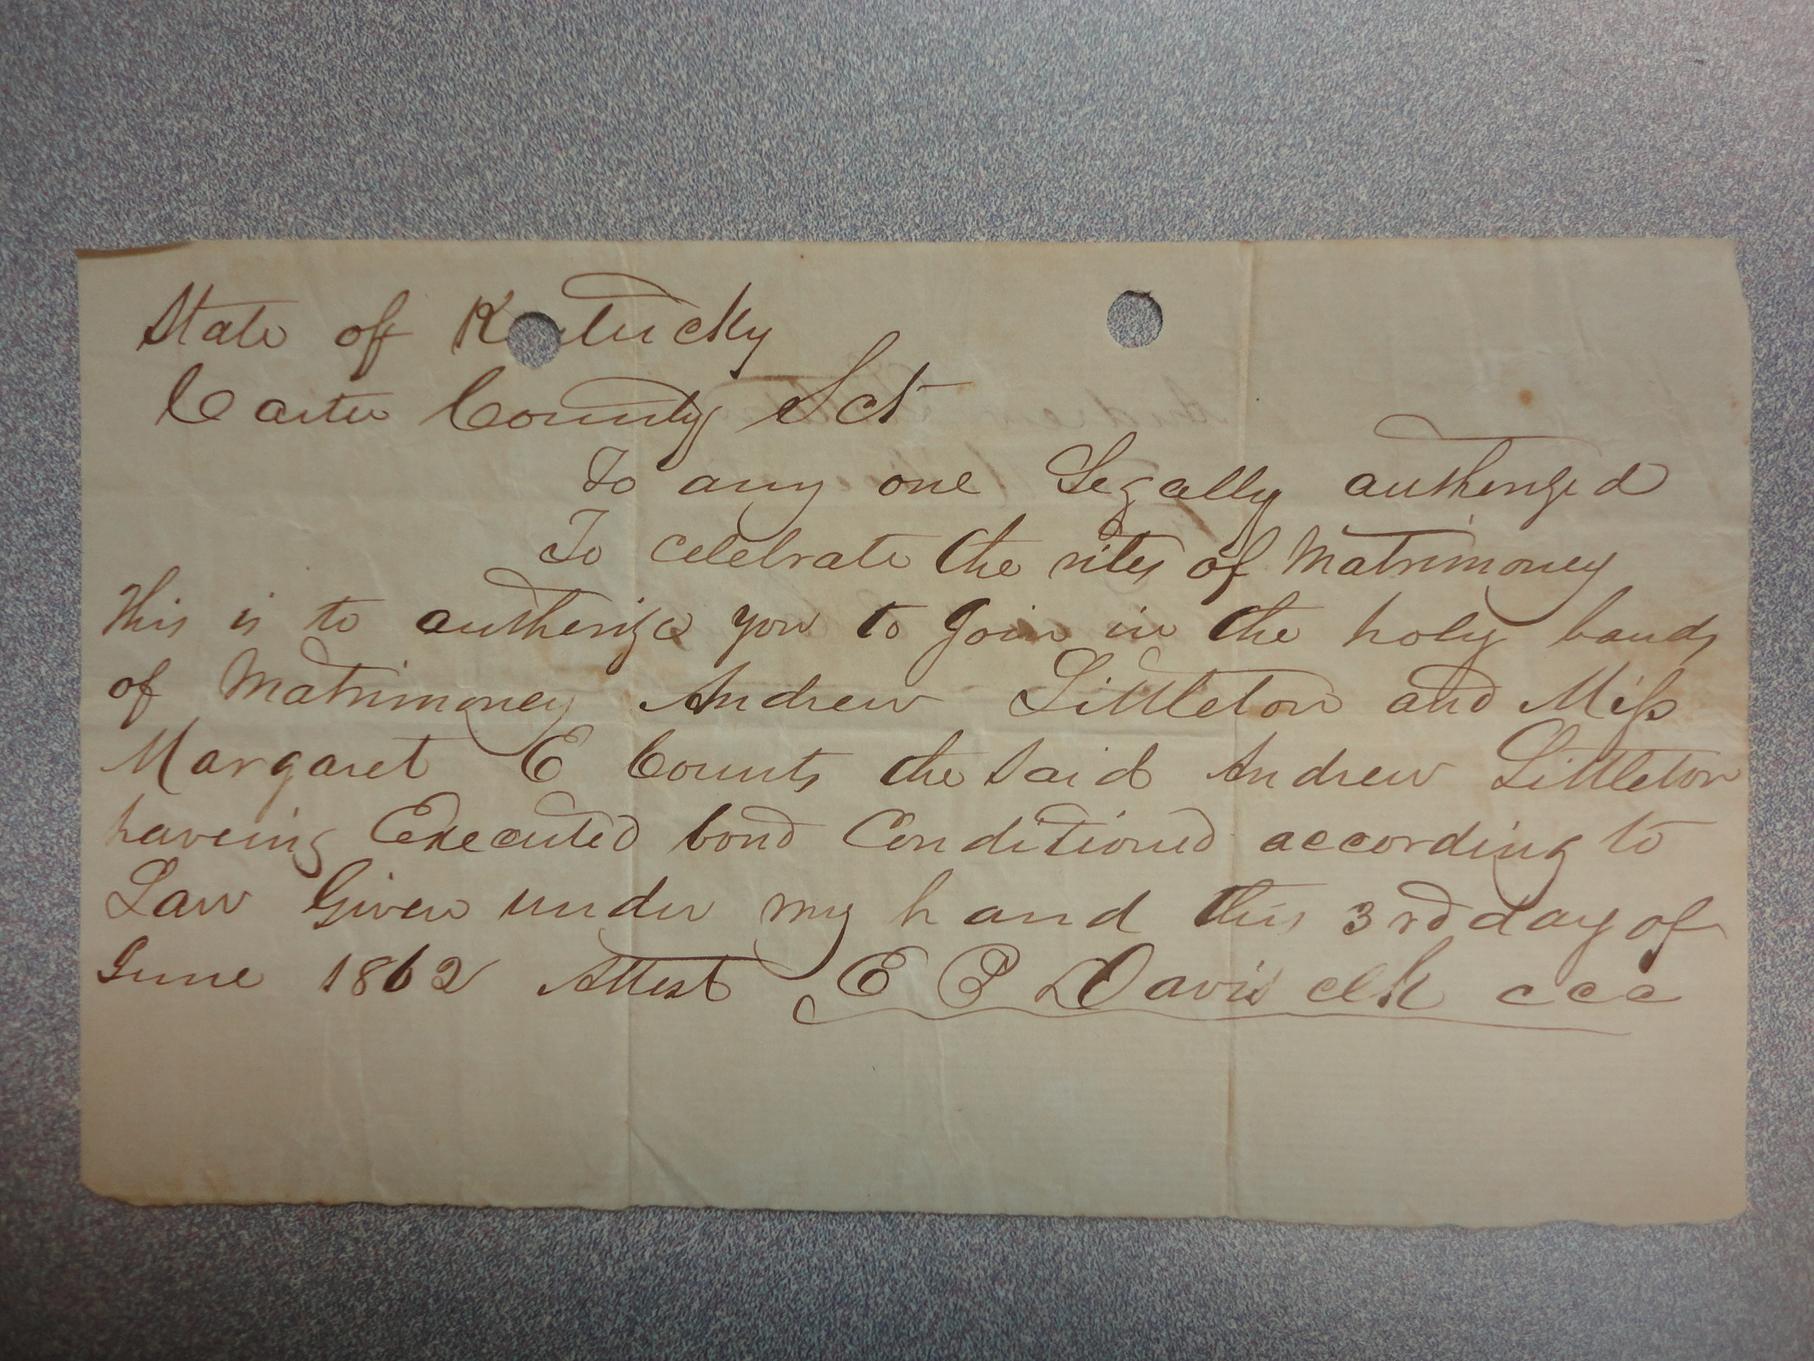 State of Kentucky
Carter County Sct
To any one Legally autherized
To celebrate the rites of Matrimoney
This is to autherize you to Join in the holy bands
of Matrimoney Andrew Littleton and Miss
Margaret E Counts the Said Andrew Littleton
haveing Executed bond Conditioned according to
Law Given under my hand this 3rd day of
June 1862 Attest E P Davis clk ccc